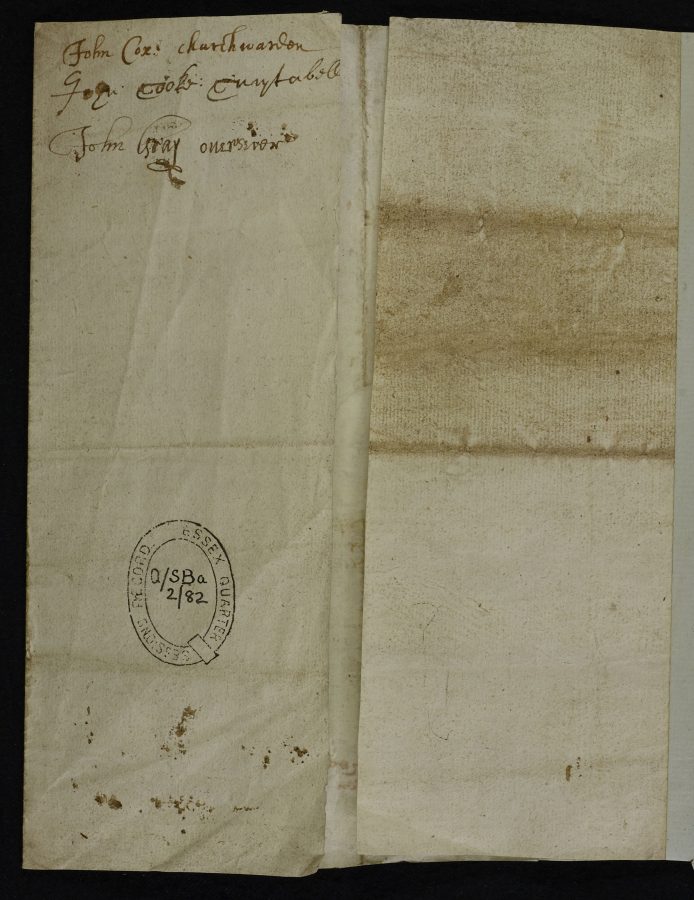 John Cox: churchwarden
John Cooke: Cunstabell
John Gray overseer
ESSEX QUARTER SESSIONS RECORD
Q/SBa
2/82